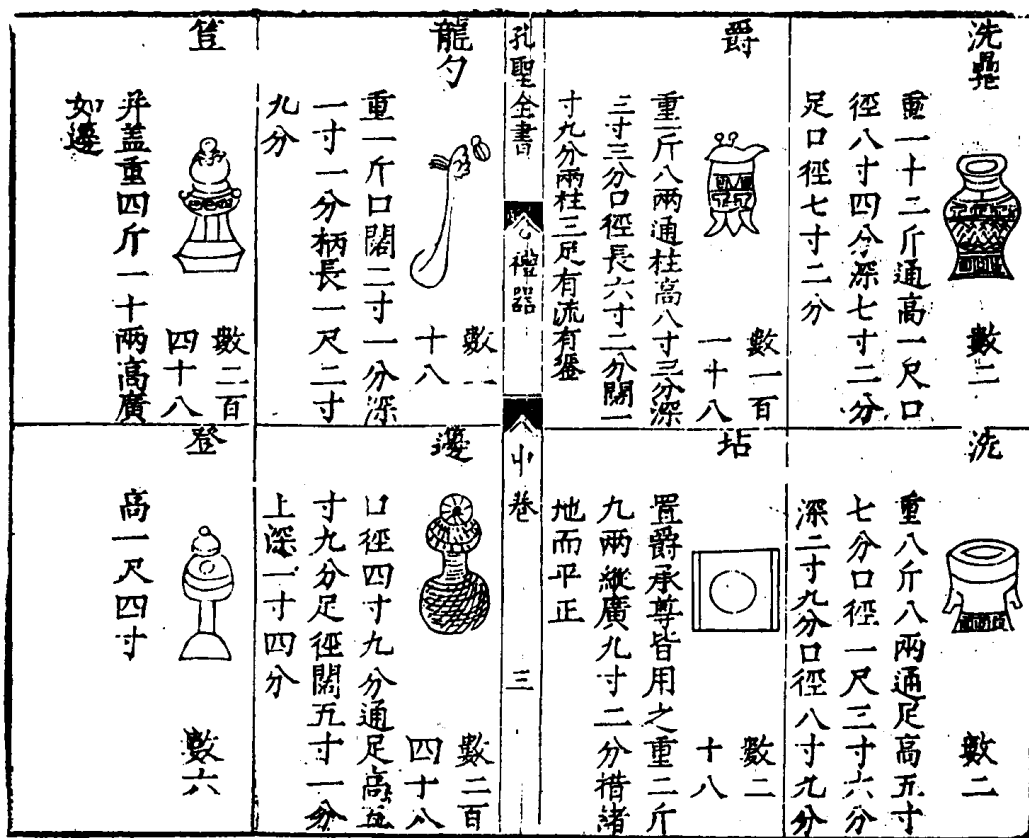 洗罍
重一十二斤通高一尺口
徑八寸四分深七寸二分
足口徑七寸二分
數二
洗
重八斤八兩通足高五寸
七分口徑一尺三寸六分
深二寸九分口徑八寸九分
數二
爵
重一斤八兩通柱高八寸三分深
三寸三分口徑長六寸二分闊一
寸九分兩柱三足有流有鋬
數一百
一十八
坫
置爵承尊皆用之重二斤
九兩縱廣九寸二分措諸
地而平正
數二
十八
孔聖全書
禮器
中卷
三
龍勺
重一斤口闊二寸一分深
一寸一分柄長一尺二寸
九分
數一
十八
籩
口徑四寸九分通足高五
寸九分足徑闊五寸一分
上深一寸四分
數二百
四十八
并盖重四斤一十兩高廣
如籩
數二百
四十八
登
高一尺四寸
數六